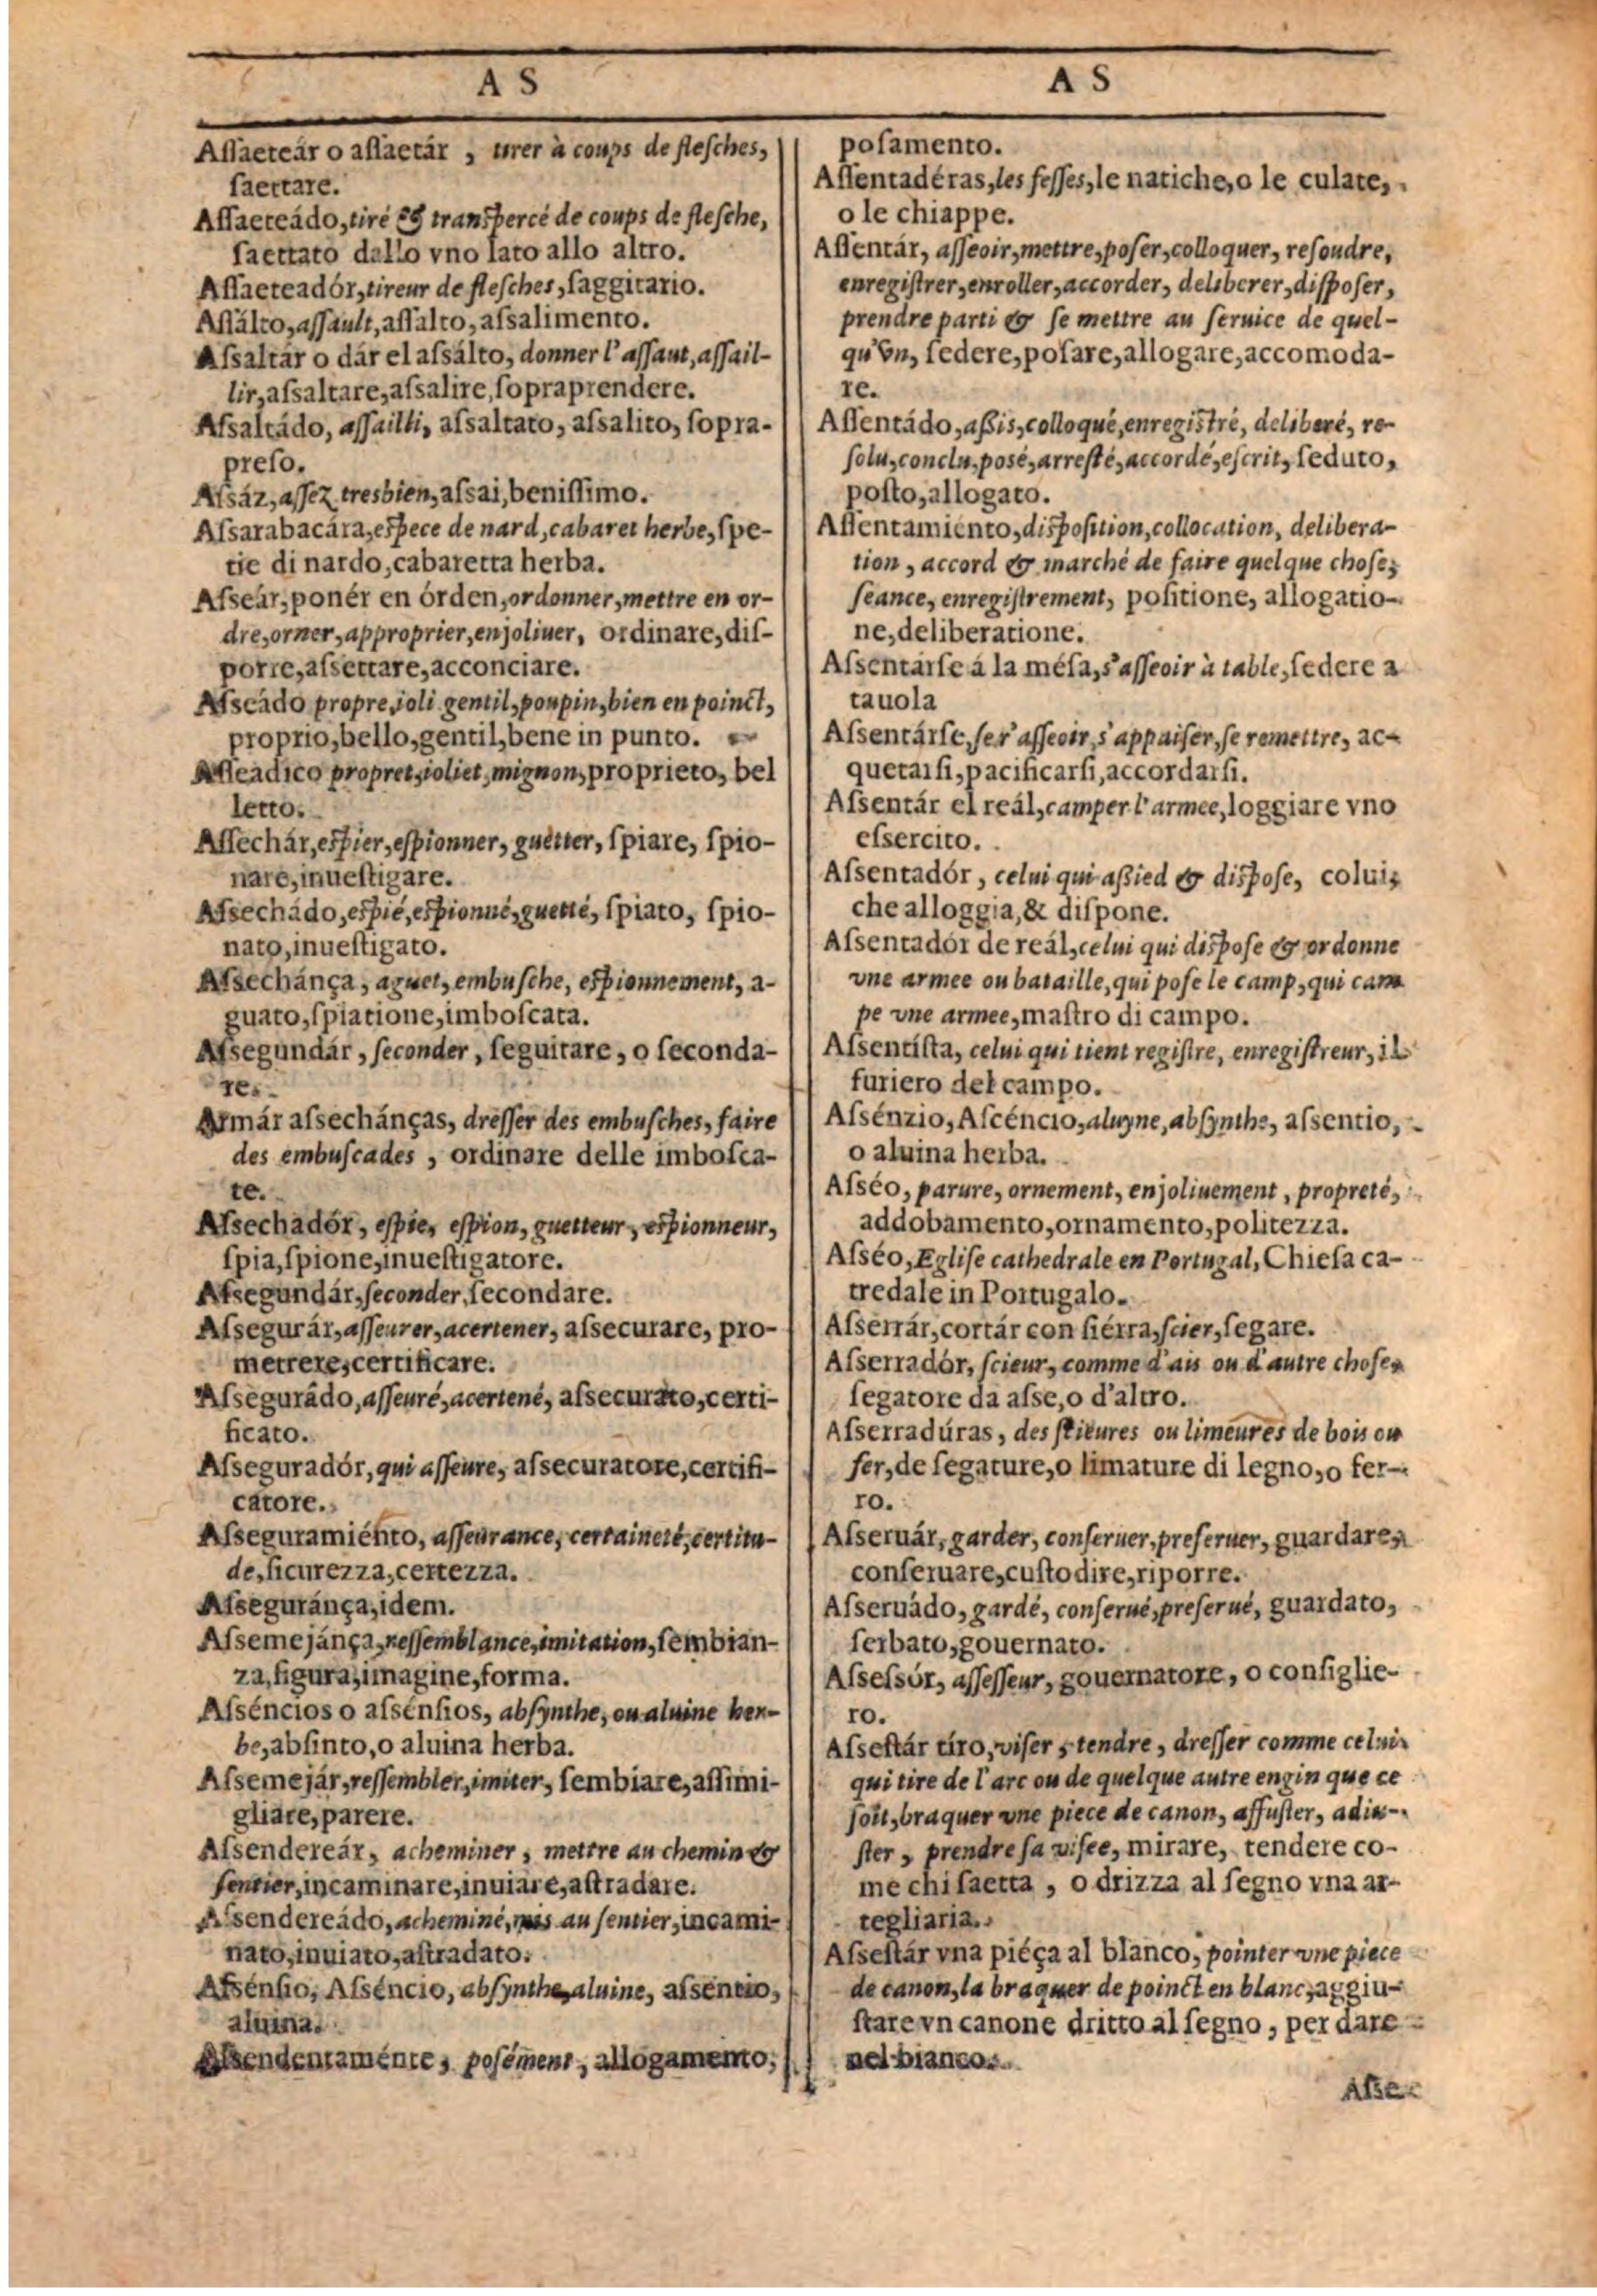 A S
Aſſaeteár o aſſaetár , tirer à coups de fleſches,
ſaettare.
Aſſaeteádo,tiré & tranſpercé de coups de fleſche,
ſaettato dallo vno lato allo altro.
Aſſaeteadór,tireur de fleſches,ſaggitario.
Aſſálto,aſſault,aſſalto,aſsalimento.
Aſsaltár o dár el aſsálto, donner l'aſſaut,aſſail-
lir,aſsaltare,aſsalire,ſopraprendere.
Aſsaltádo, aſſailli, aſsaltato, aſsalito, ſopra-
preſo.
Aſsáz,aſſez tresbien,aſsai,beniſſimo.
Aſsarabacára,eſpece de nard,cabaret herbe,ſpe-
tie di nardo,cabaretta herba.
Aſseár,ponér en órden,ordonner,mettre en or-
dre,orner,approprier,enjoliuer, ordinare,diſ-
porre,aſsettare,acconciare.
Aſseádo propre,ioli gentil,poupin,bien en poinct,
proprio,bello,gentil,bene in punto.
Aſſeadico propret,ioliet,mignon,proprieto, bel
letto.
Aſſechár,eſpier,eſpionner, guetter, ſpiare, ſpio-
nare,inueſtigare.
Aſsechádo,eſpié,eſpionné,guetté, ſpiato, ſpio-
nato,inueſtigato.
Aſsechánça, aguet,embuſche, eſpionnement, a-
guato,ſpiatione,imboſcata.
Aſsegundár , ſeconder , ſeguitare , o ſeconda-
re.
Armár aſsechánças, dreſſer des embuſches, faire
des embuſcades , ordinare delle imboſca-
te.
Aſsechadór , eſpie, eſpion, guetteur, eſpionneur,
ſpia,ſpione,inueſtigatore.
Aſsegundár,ſeconder,ſecondare.
Aſsegurár,aſſeurer,acertener, aſsecurare, pro-
mettere,certificare.
Aſsegurádo,aſſeuré,acertené, aſsecurato,certi-
ficato.
Aſsegurador, qui aſſeure, aſsecuratore,certifi-
catore.
Aſseguramiénto, aſſeurance, certaineté,certitu-
de,ſicurezza,certezza.
Aſseguránça,idem.
Aſsemejánça,reſſemblance,imitation,ſembian-
za,figura,imagine,forma.
Aſséncios o aſsénſios, abſynthe, ou aluine her-
be,abſinto,o aluina herba.
Aſsemejár,reſſembler,imiter, ſembiare,aſſimi-
gliare,parere.
Aſsendereár, acheminer , mettre au chemin &
ſentier,incaminare,inuiare,aſtradare.
Aſsendereádo,acheminé,mis au ſentier,incami-
nato,inuiato,aſtradato.
Aſsénſio, Aſséncio, abſynthe,aluine, aſsentio,
aluina.
Aſsendentaménte, poſément , allogamento,
A S
poſamento.
Aſſentadéras,les feſſes,le natiche,o le culate,
o le chiappe.
Aſſentár, aſſeoir,mettre,poſer,colloquer, reſoudre,
enregiſtrer,enroller,accorder, deliberer,diſpoſer,
prendre parti & ſe mettre au ſeruice de quel-
qu'vn, ſedere,poſare,allogare,accomoda-
re.
Aſſentádo,aßis,colloqué,enregiſtré, deliberé, re-
ſolu,conclu,posé,arreſté,accordé,eſcrit, ſeduto,
poſto,allogato.
Aſſentamiénto,diſpoſition,collocation, delibera-
tion , accord & marché de faire quelque choſe,
ſeance, enregiſtrement, poſitione, allogatio-
ne,deliberatione.
Aſsentárſe á la méſa,s'aſſeoir à table,ſedere a
tauola
Aſsentárſe,ſe s'aſſeoir,s'appaiſer,ſe remettre, ac-
quetarſi,pacificarſi,accordarſi.
Aſsentár el reál,camper l'armee,loggiare vno
eſsercito.
Aſsentadór , celui qui aßied & diſpoſe, colui,
che alloggia,& diſpone.
Aſsentadór de reál,celui qui diſpoſe & ordonne
vne armee ou bataille,qui poſe le camp,qui cam
pe vne armee,maſtro di campo.
Aſsentíſta, celui qui tient regiſtre, enregiſtreur, il
furiero del campo.
Aſsénzio,Aſcéncio,aluyne,abſynthe, aſsentio,
o aluina herba.
Aſséo, parure, ornement, enjoliuement , propreté,
addobamento,ornamento,politezza.
Aſséo,Egliſe cathedrale en Portugal, Chieſa ca-
tredale in Portugalo.
Aſserrár,cortár con ſiérra,ſcier,ſegare.
Aſserradór, ſcieur, comme d'ais ou d'autre choſe,
ſegatore da aſse,o d'altro.
Aſserradúras , des ſcieures ou limeures de bois ou
fer,de ſegature,o limature di legno,o fer-
ro.
Aſseruár, garder, conſeruer,preſeruer, guardare,
conſeruare,cuſtodire,riporre.
Aſseruádo, gardé, conſerué,preſerué, guardato,
ſerbato,gouernato.
Aſseſsór, aſſeſſeur, gouernatore , o conſiglie-
ro.
Aſseſtár tíro,viſer , tendre , dreſſer comme celui
qui tire de l'arc ou de quelque autre engin que ce
ſoit,braquer vne piece de canon, affuſter, adiu-
ſter , prendre ſa viſee, mirare, tendere co-
me chi ſaetta , o drizza al ſegno vna ar-
tegliaria.
Aſseſtár vna piéça al blanco, pointer vne piece
de canon,la braquer de poinct en blanc,aggiu-
ſtare vn canone dritto al ſegno , per dare
nel bianco.
Aſse-